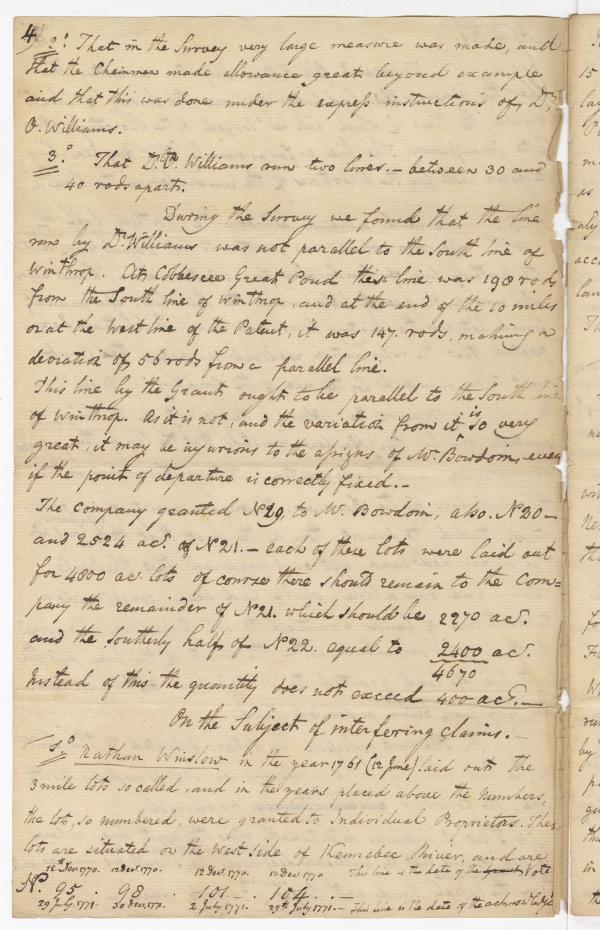 4
2.° That in the Survey very large measure was made, and
that the Chainmen made allowance great beyond example
and that this was done under the express instructions of Dr.
O. Williams.
3.° That Dr. O. Williams run two lines. – between 30 and
40 rods apart.
During the Survey we found that the line
run by Dr. Williams was not parallel to the South line of
Winthrop. At Cobbescee Great Pond this line was 198 rods
from the South line of Winthrop, and at the end of the 10 miles
or at the West line of the Patent, it was 147. rods, making a
deviation of 56 rods from a parallel line.
This line by the Grant ought to be parallel to the South line
of Winthrop. As it is not, and the variation from it is so very
great, it may be injurious to the assigns of Mr. Bowdoin, even
if the point of departure is correctly fixed. –
The Company granted No 19, to Mr. Bowdoin, also. No 20 –
and 2524 acs. of No 21. – each of these lots were laid out
for 4800 ac. lots of course there should remain to the Com=
pany the remainder of No 21. which should be 2270 acs.
and the Southerly half of No 22. equal to 2400 acs.
4670
Instead of this the quantity does not exceed 400 acs. –
On the Subject of interferring claims. –
1.° Nathan Winslow in the year 1761 (12 June) laid out the
3 mile lots so called, and in the years placed above the numbers,
the lots, so numbered, were granted to Individual Proprietors. These
lots are situated on the West side of Kennebec River, and are
12th Decr. 1770. 12 Decr. 1770. 12 Decr. 1770. 12 Decr. 1770 This line is the date of the Vote
No. 95. 98. 101. 104. –
29 July. 1771. 30 Decr. 1771. 2 July 1771. 29th July 1771. – This line is the date of the acknowledgt.